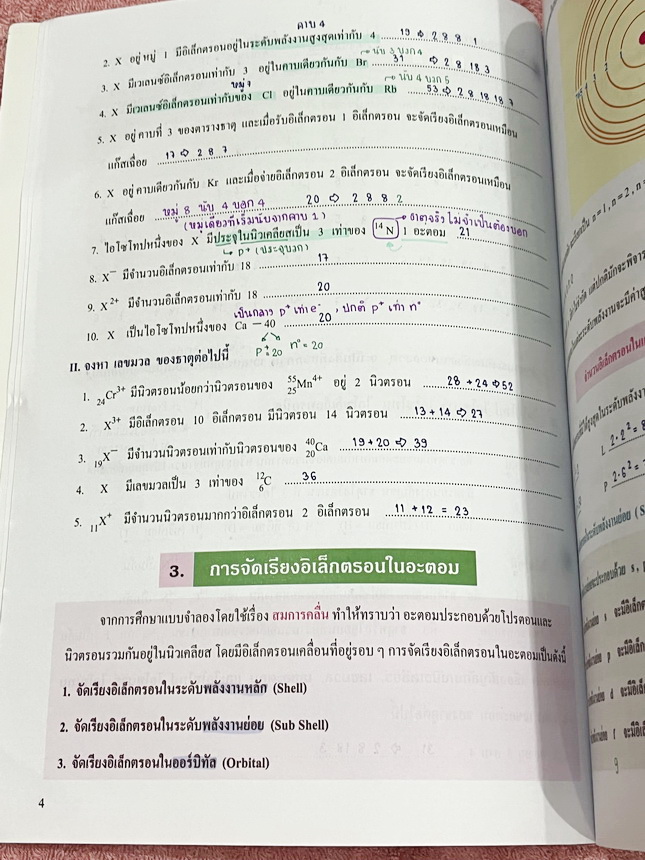 คาบ 4
2. X อยู่หมู่ 1 มีอิเล็กตรอนอยู่ในระดับพลังงานสูงสุดเท่ากับ 4 19 ⇨ 2 8 8 1
นับ 3 บวก 4
3. X มีเวเลนซ์อิเล็กตรอนเท่ากับ 3 อยู่ในคาบเดียวกันกับ Br 31 ⇨ 2 8 18 3
หมู่ 7 นับ 4 บวก 5
4. X มีเวเลนซ์อิเล็กตรอนเท่ากับของ Cl อยู่ในคาบเดียวกันกับ Rb 53 ⇨ 2 8 18 18 7
5. X อยู่คาบที่ 3 ของตารางธาตุ และเมื่อรับอิเล็กตรอน 1 อิเล็กตรอน จะจัดเรียงอิเล็กตรอนเหมือน
แก๊สเฉื่อย 17 ⇨ 2 8 7
6. X อยู่คาบเดียวกันกับ Kr และเมื่อจ่ายอิเล็กตรอน 2 อิเล็กตรอน จะจัดเรียงอิเล็กตรอนเหมือน
แก๊สเฉื่อย หมู่ 8 นับ 4 บวก 4 20 ⇨ 2 8 8 2
(หมู่เดียวที่เริ่มนับจากคาบ 1) ธาตุจริง ไม่จำเป็นต้องบอก
7. ไอโซโทปหนึ่งของ X มีประจุในนิวเคลียสเป็น 3 เท่าของ ¹⁴N 1 อะตอม 21
p⁺ (ประจุบวก)
8. X⁻ มีจำนวนอิเล็กตรอนเท่ากับ 18 17
9. X²⁺ มีจำนวนอิเล็กตรอนเท่ากับ 18 20
เป็นกลาง p⁺ เท่า e⁻, ปกติ p⁺ เท่า n°
10. X เป็นไอโซโทปหนึ่งของ Ca – 40 20
p⁺ = 20 n° = 20
II. จงหา เลขมวล ของธาตุต่อไปนี้
1. ₂₄Cr³⁺ มีนิวตรอนน้อยกว่านิวตรอนของ ⁵⁵₂₅Mn⁴⁺ อยู่ 2 นิวตรอน 28 + 24 ⇨ 52
2. X³⁺ มีอิเล็กตรอน 10 อิเล็กตรอน มีนิวตรอน 14 นิวตรอน 13 + 14 ⇨ 27
3. ₁₉X⁻ มีจำนวนนิวตรอนเท่ากับนิวตรอนของ ⁴⁰₂₀Ca 19 + 20 ⇨ 39
4. X มีเลขมวลเป็น 3 เท่าของ ¹²₆C 36
5. ₁₁X⁺ มีจำนวนนิวตรอนมากกว่าอิเล็กตรอน 2 อิเล็กตรอน 11 + 12 = 23
3. การจัดเรียงอิเล็กตรอนในอะตอม
จากการศึกษาแบบจำลองโดยใช้เรื่อง สมการคลื่น ทำให้ทราบว่า อะตอมประกอบด้วยโปรตอนและ
นิวตรอนรวมกันอยู่ในนิวเคลียส โดยมีอิเล็กตรอนเคลื่อนที่อยู่รอบ ๆ การจัดเรียงอิเล็กตรอนในอะตอมเป็นดังนี้
1. จัดเรียงอิเล็กตรอนในระดับพลังงานหลัก (Shell)
2. จัดเรียงอิเล็กตรอนในระดับพลังงานย่อย (Sub Shell)
3. จัดเรียงอิเล็กตรอนในออร์บิทัล (Orbital)
4